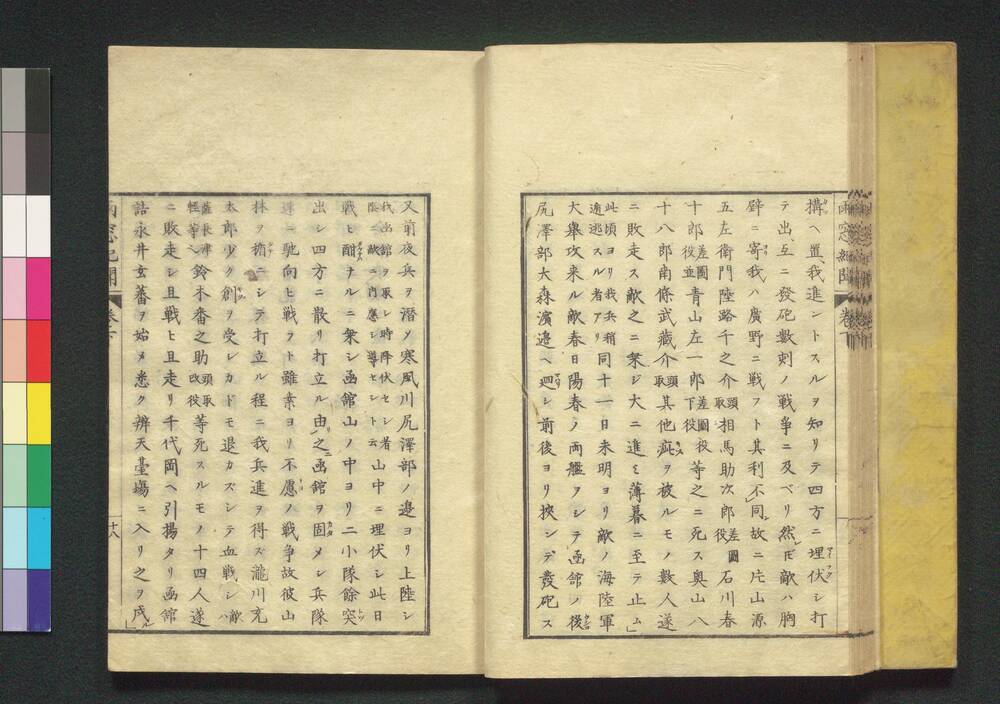 搆ヘ置、我進ントスルヲ知リテ四方ニ埋伏シ打
テ出、互ニ發砲數刻ノ戦争ニ及ベリ然ﾄﾓ敵ハ胸
壁ニ寄我ハ廣野ニ戦フト其利不同故ニ片山源
五左衛門陸路千之介頭取相馬助次郎差圖役石川春
十郎差圖役並青山左一郎差圖役下役等之ニ死ス奥山八
十八郎南條武藏介頭取其他疵ヲ被ルモノ數人遂
ニ敗走ス敵之ニ乗ジ大ニ進ミ薄暮ニ至テ止ム
此頃ヨリ我兵稍逋逃スル者アリ同十一日未明ヨリ敵ノ海陸軍
大舉攻来ル敵春日陽春ノ両艦ヲシテ函館ノ後
尻澤部大森濱邉ヘ廻シ前後ヨリ挾ンデ發砲ス
又前夜兵ヲ潜メ寒風川尻澤部ノ邉ヨリ上陸シ
我出館ヲ取シ時降伏セシ者陰ニ敵ニ内應シ導セシト云山中ニ埋伏シ此日
戦ヒ酣ナルニ乗シ函館山ノ中ヨリ二小隊餘突
出シ四方ニ散リ打立ル由之函館ヲ固メシ兵隊
速ニ馳向ヒ戦フト雖素ヨリ不慮ノ戦争故彼山
林ヲ楯ニシテ打立ル程ニ我兵進ヲ得ズ瀧川充
太郎少ク創ヲ受シカドモ退カズシテ血戦シ敵ハ
薩長津輕等ヘ鈴木畨之助頭取改役等死スルモノ十四人遂
ニ敗走シ且戦ヒ且走リ千代岡ヘ引揚タリ函館
詰永井玄蕃ヲ始メ悉ク辨天臺塲ニ入リ之ヲ戍ル
十八